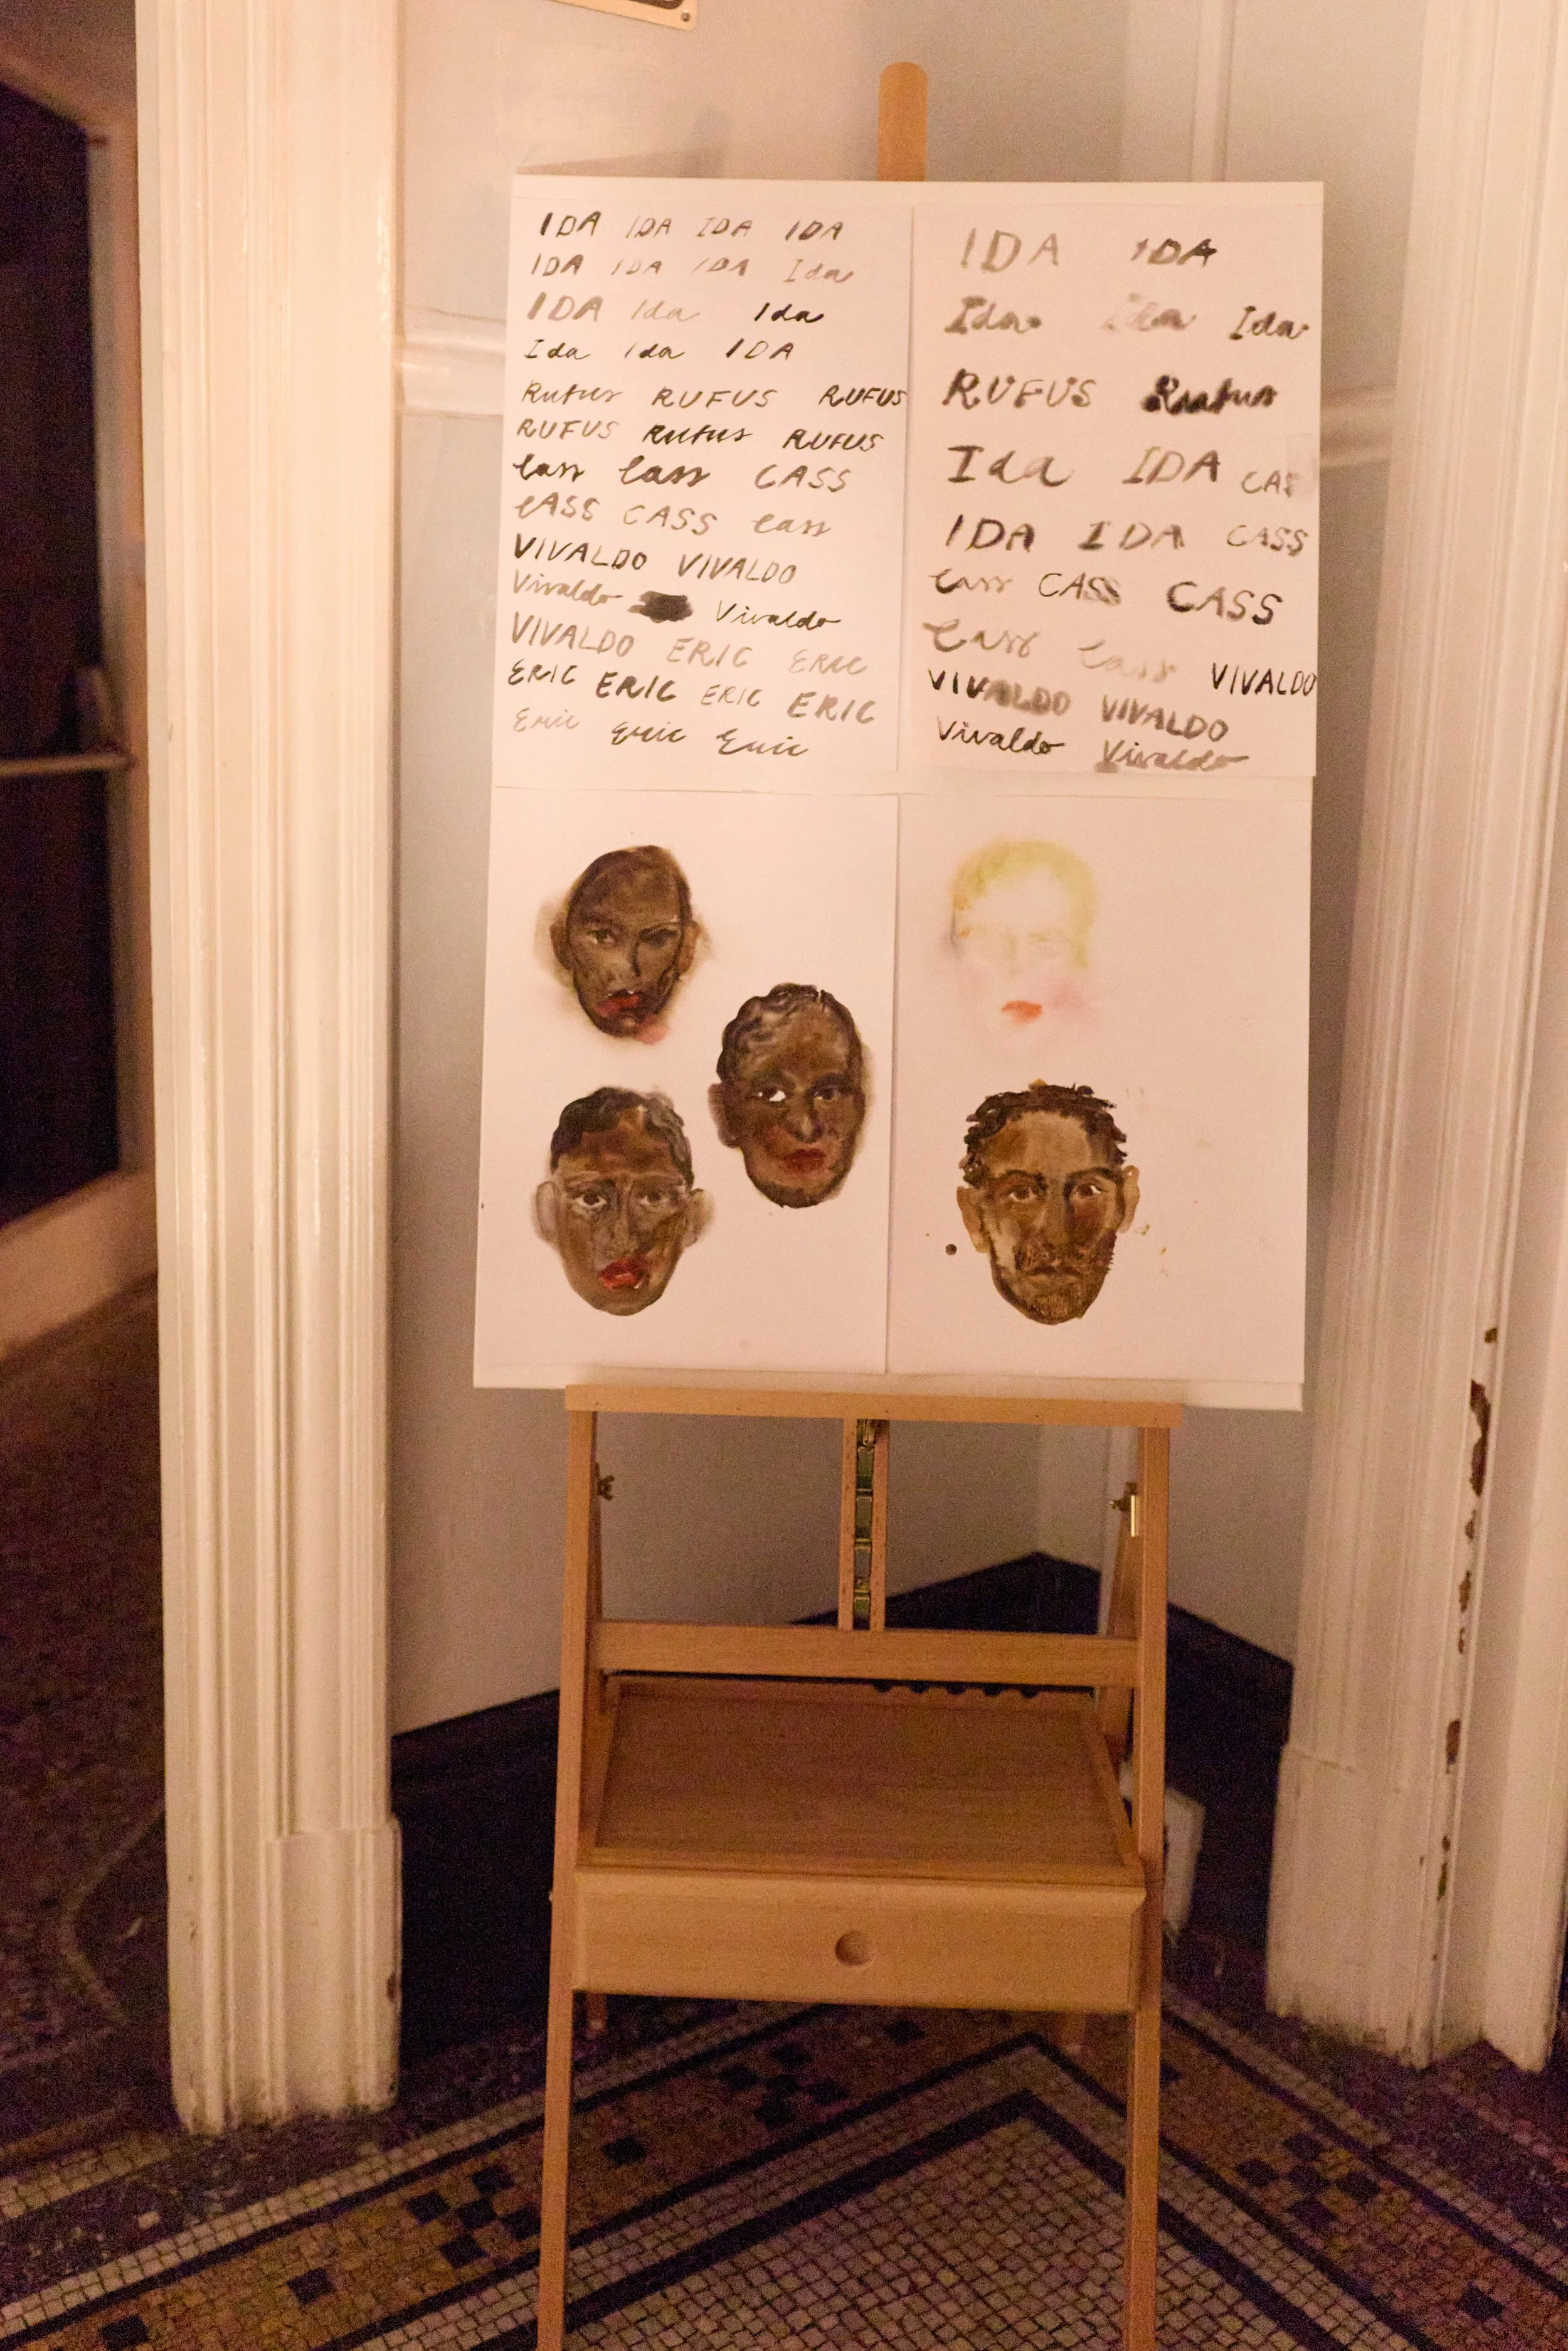 IDA IDA IDA IDA
IDA IDA IDA Ida
IDA Ida Ida
Ida Ida IDA
Rufus RUFUS RUFUS
RUFUS Rufus RUFUS
Cass Cass CASS
CASS CASS Cass
VIVALDO VIVALDO
Vivaldo Vivaldo
VIVALDO ERIC ERIC
ERIC ERIC ERIC ERIC
Eric Eric Eric
IDA IDA
Ida Ida Ida
RUFUS Rufus
Ida IDA CAS
IDA IDA CASS
Cass CASS CASS
Cass Cass VIVALDO
VIVALDO VIVALDO
Vivaldo Vivaldo